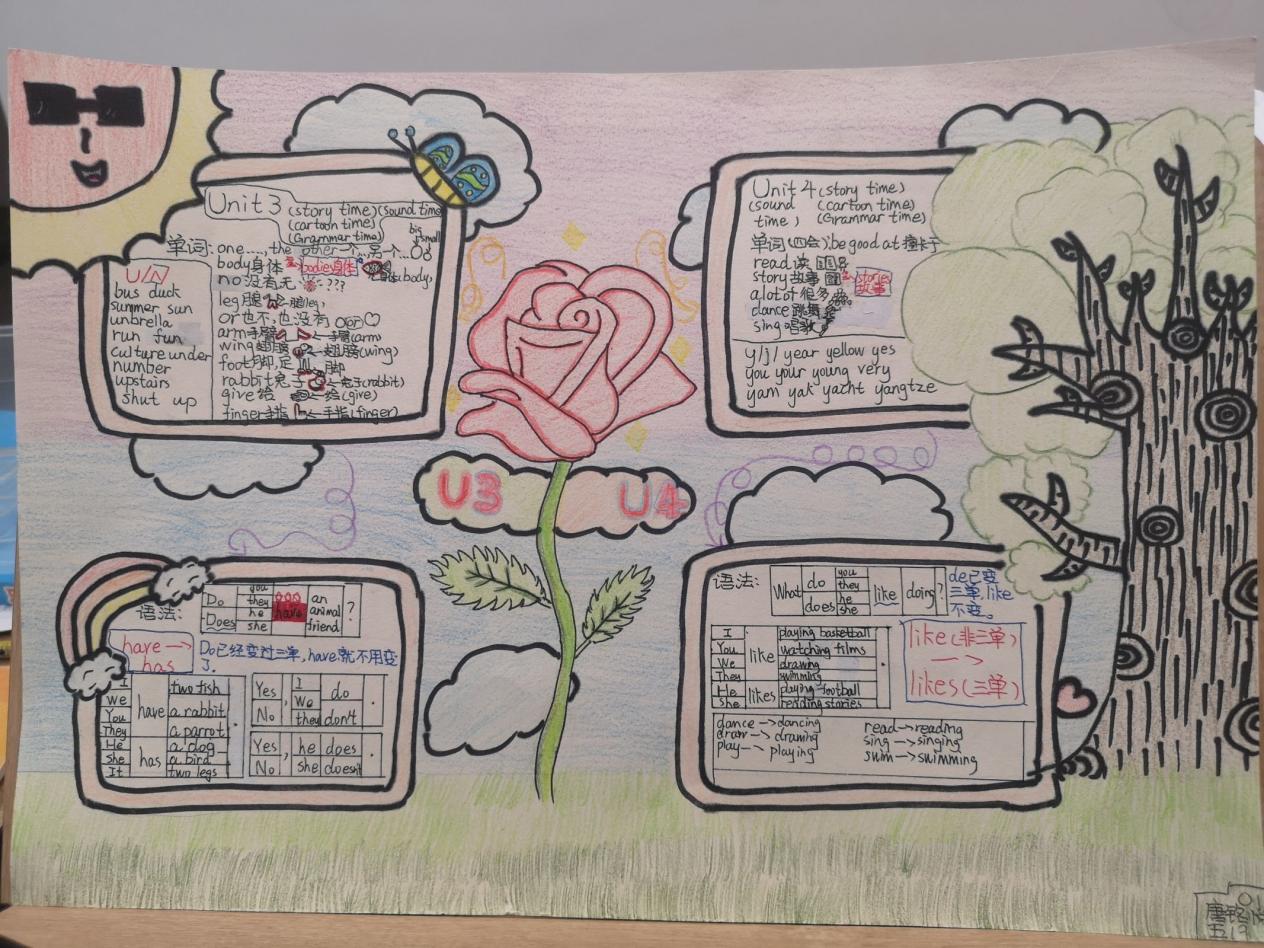 Unit 3 (story time) (sound time)
(cartoon time)
(Grammar time)
big
small
单词: one..., the other 一个...另个...
body身体 bodies身体 body)
no没有无 ???
leg腿 腿(leg)
or也不,也没有 or
arm手臂 手臂(arm)
wing翅膀 翅膀(wing)
foot脚,足 脚
rabbit兔子 兔子(rabbit)
give给 给(give)
finger手指 手指(finger)
U/ʌ/
bus duck
summer sun
unbrella
run fun
culture under
number
upstairs
shut up
Unit 4 (story time)
(sound time) (cartoon time)
(Grammar time)
单词(四会): be good at 擅长于
read 读
story 故事 stories 故事
a lot of 很多
dance 跳舞
sing 唱歌
y/j/ year yellow yes
you your young very
yam yak yacht yangtze
U3 U4
语法:
Do Does
you they he she
have
an animal friend
?
have → has
Do已经变过三单,have就不用变了.
I
We
You
They
have
He
She
It
has
two fish
a rabbit
a parrot
a dog
a bird
two legs
.
Yes No , I We they do don't .
Yes No , he she does doesn't .
语法:
What do does you they he she like doing?
de已变三单,like不变。
I
You
We
They
like
He
She
likes
playing basketball
watching films
drawing
swimming
playing football
reading stories
.
like(非三单)
→
likes(三单)
dance → dancing
draw → drawing
play → playing
read → reading
sing → singing
swim → swimming